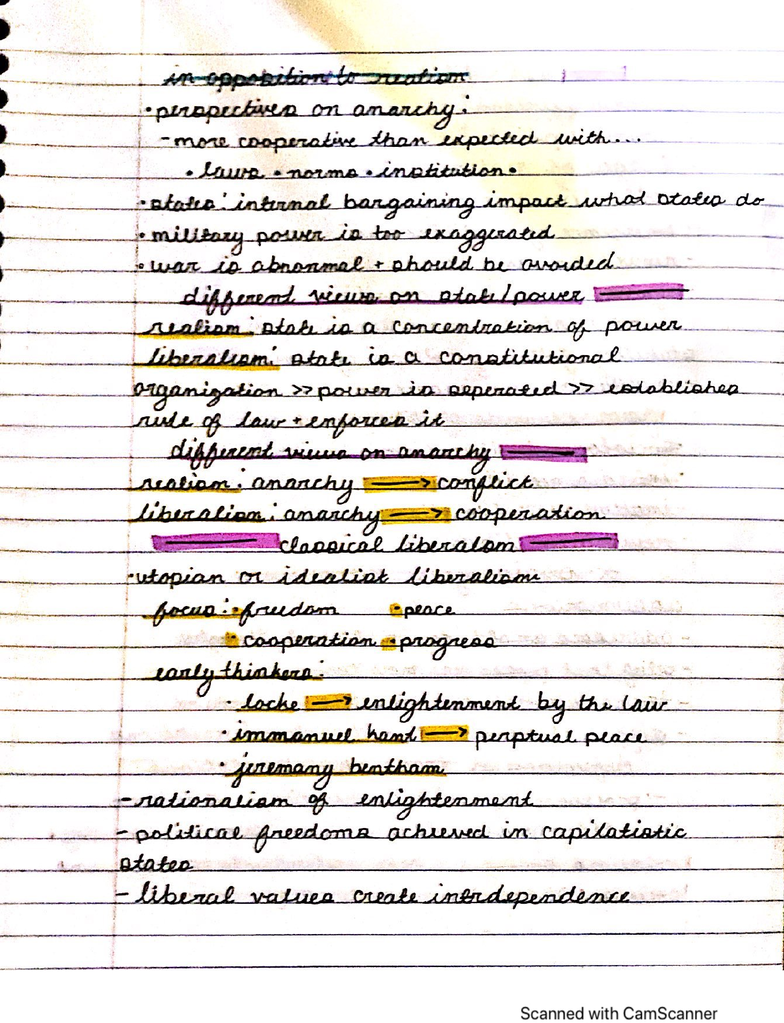 in opposition to realism
•perspectives on anarchy:
-more cooperative than expected with...
•laws •norms •institution•
•states: internal bargaining impact what states do
•military power is too exaggerated
•war is abnormal + should be avoided
different views on state/power
realism: state is a concentration of power
liberalism: state is a constitutional
organization >> power is seperated >> establishes
rule of law + enforces it
different views on anarchy
realism: anarchy → conflict
liberalism: anarchy → cooperation
classical liberalsm
•utopian or idealist liberalism
focus: •freedom •peace
•cooperation •progress
early thinkers:
• locke → enlightenment by the law
• immanuel kant → perptual peace
• jeremany bentham
-rationalism of enlightenment
- political freedoms achieved in capilatistic
states
- liberal values create intrdependence
Scanned with CamScanner